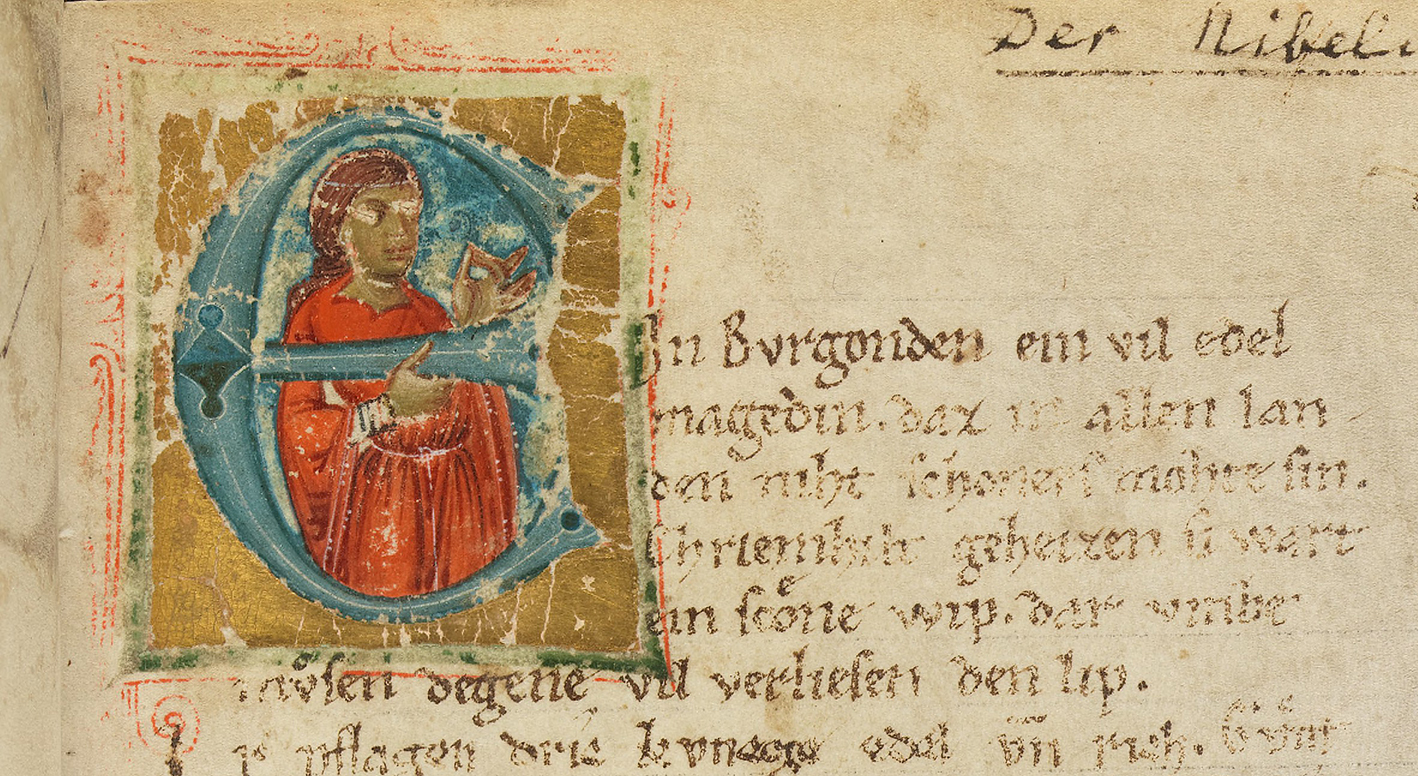 Der Nibelu
E
In Bvrgonden ein vil edel
magedin. daz in allen lan
den niht schoners mohte sin.
Chriemhilt geheizen si wart
ein scoͤne wip. dar vmbe
mvͦsen degene vil verliesen den lip.
Ir pflagen drie kvnege edel vn̄ rich.